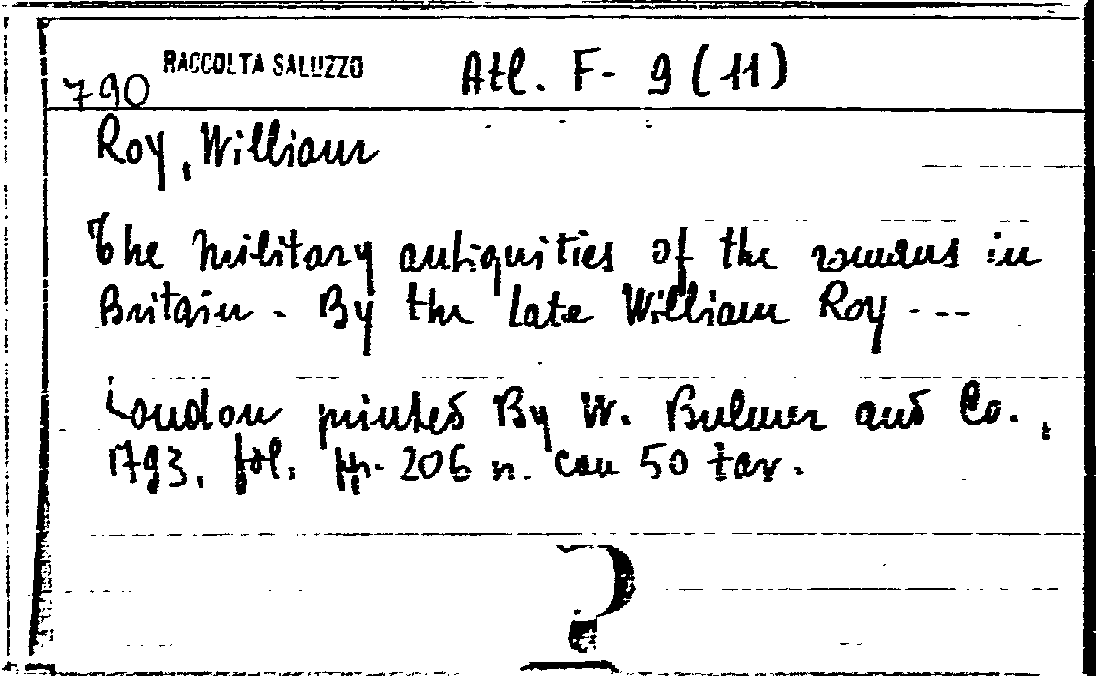 790 RACCOLTA SALUZZO Atl. F- 9 (11)
Roy, William
The military antiquities of the romans in
Britain - By the late William Roy ---
London printed By W. Bulmer and Co.,
1793. fol. pp. 206 n. con 50 tav.
?